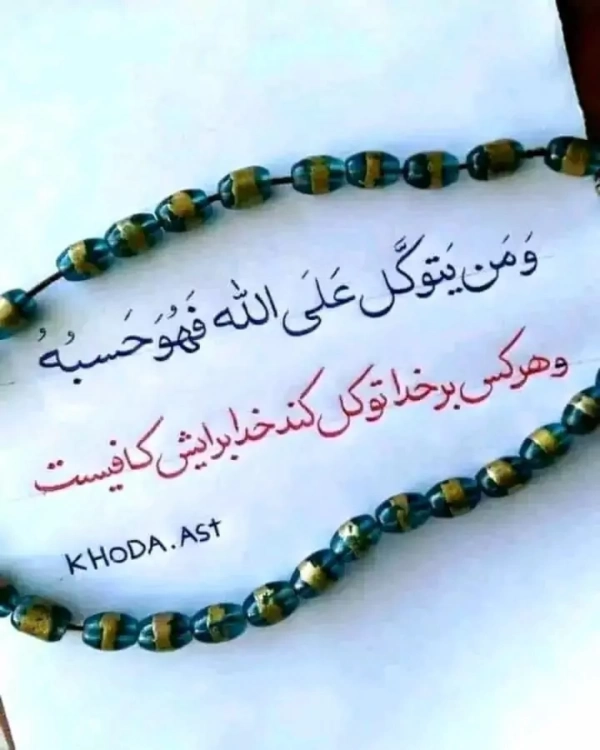 وَ مَن یَتوکَّل عَلَی الله فَهُوَ حَسبُهُ
و هرکس بر خدا توکل کند خدا برایش کافیست
KHODA.Ast